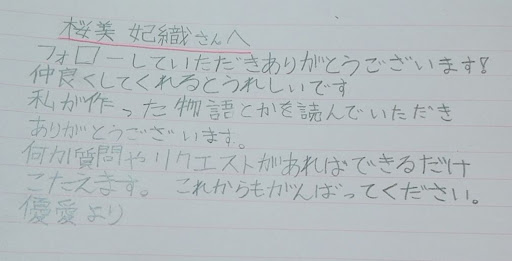 桜美 妃織さんへ
フォローしていただきありがとうございます!
仲良くしてくれるとうれしいです
私が作った物語とかを読んでいただき
ありがとうございます。
何か質問やリクエストがあればできるだけ
こたえます。 これからもがんばってください。
優愛より